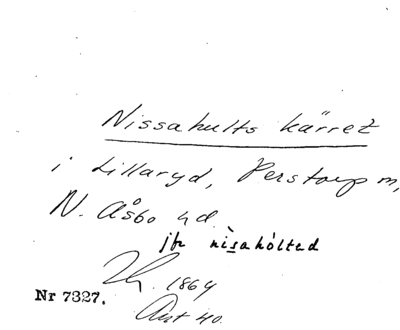 Nissahults kärret
i Lillaryd, Perstorp m,
N. Åsbo hd.
jfr nìsahólted
1864
Nr 7327.
Avt 40.